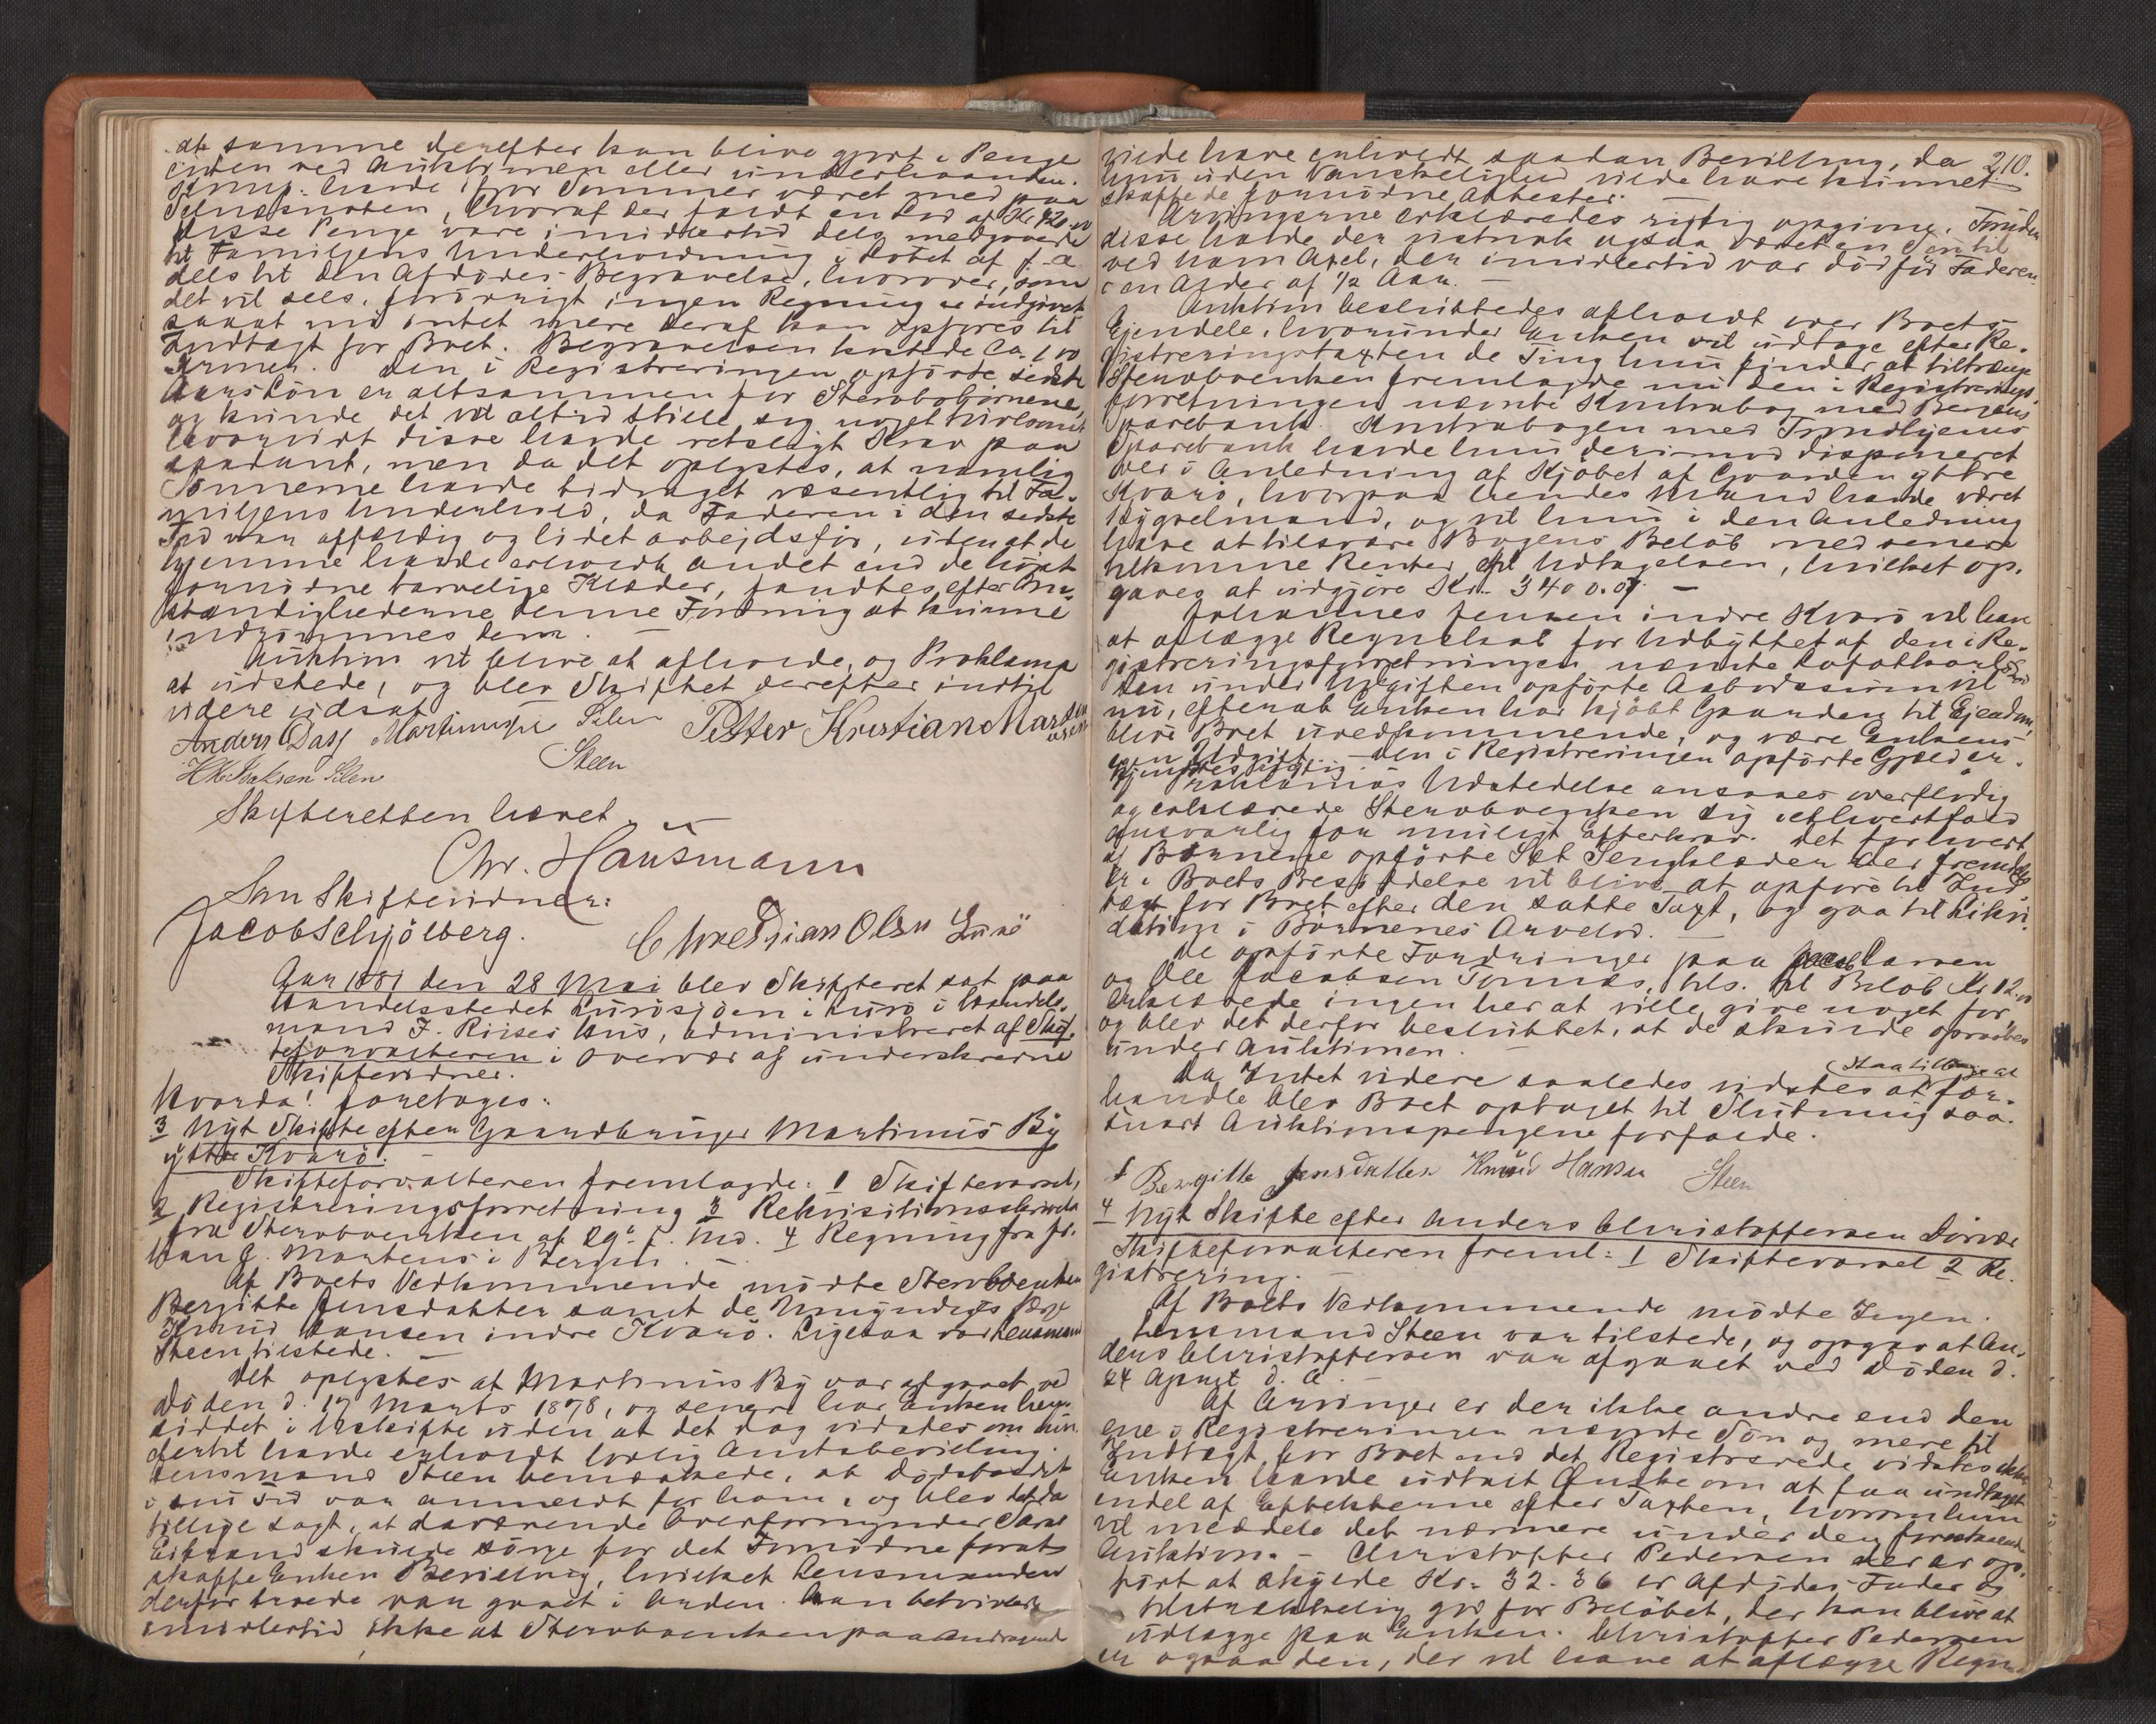 at samme derefter kan blive gjort i Penge
enten ved Auktionen eller underhaanden.
havde i for Sommer været med paa
hvoraf der faldt en Lod af Kr 120.00
disse Penge vare imidlertid dels medgaaede
til Familjens Underholdning i Løbet af f. A.
dels til den Afdødes Begravelse, hvorover, som
det vil sees, forøvrigt ingen Regning er indgivet
saaat nu intet mere deraf kan opføres til
Indtægt for Boet. Begravelsen kostede Ca. 100
Kroner. Den i Registreringen opførte sidste
Aars Løn er altsammen for Sterbobørnene,
og kunde det vel altid stille sig noget tvivlsomt
hvorvidt disse havde retsligt Krav paa
saadant, men da det oplystes, at navnlig
Sønnerne havde bidraget væsentlig til Fa-
miljens Underhold, da Faderen i den sidste
Tid var affældig og lidet arbejdsfør, uden at de
hjemme havde erholdt andet end de høist
fornødne tarvelige Klæder, fandtes efter Om-
stændighederne denne Fordring at kunne
indrømmes dem. —
Auktion vil blive at afholde, og Proklama
at udstede, og blev Skiftet derefter indtil
videre udsat
Anders Dass Petter Kristian Martinusen
Steen
Skifteretten hævet. —
Chr. Hausmann
Som Skiftevidner:
Jacob Schjölberg. Christian Olsen Lurø
Aar 1881 den 28 Mai blev Skifteret sat paa
Handelsstedet Lurøsjøen i Lurø i Handels-
mand J. Riises Hus, administreret af Skif-
teforvalteren i Overvær af underskrevne
Skiftevidner.
Hvorda! foretoges:
3 Nyt Skifte efter Gaardbruger Martinus By
ytre Kvarø.
Skifteforvalteren fremlagde: 1 Skiftevarsel,
2 Registreringsforretning 3 Rekvisitionsskrivelse
fra Sterboenken af 29de f. Md. 4 Regning fra Jo-
han G. Martens i Bergen. —
Af Boets Vedkommende mødte Sterboenken
Bergitte Jensdatter samt de Umyndiges Værge
Knud Hansen indre Kvarø. Ligesaa var Lensmand
Steen tilstede. —
Det oplystes at Martinus By var afgaaet ved
Døden d. 17 Marts 1878, og senere har Enken hen-
siddet i Uskifte uden at det dog vidstes om hun
dertil havde erholdt lovlig Amtsbevilling.
Lensmand Steen bemærkede, at Dødsfaldet
i sin Tid var anmeldt for ham, og blev det da
tillige sagt, at daværende Overformynder Sams
skulde sørge for det Fornødne forat
skaffe Enken Bevilling, hvilket Lensmanden
derfor troede var gaaet i Orden. Han betvivlede
imidlertid ikke at Sterboenken paa Andragende
210.
vilde have erholdt saadan Bevilling, da
hun uden Vanskelighed vilde have kunnet
skaffe de fornødne Attester.
Arvingerne erklæredes rigtig opgivne. Foruden
disse havde der vistnok ogsaa været en Søn til
ved Navn Axel, der imidlertid var død før Faderen
i en Alder af 1/2 Aar. —
Auktion besluttedes afholdt over Boets
Ejendele, hvorunder Enken vil udtage efter Re-
gistreringstaxten de Ting hun finder at tiltrænge
Sterboenken fremlagde nu den i Registrerings-
forretningen nævnte Kontrabog med Bergens
Sparebank. Kontrabogen med Trondhjems
Sparebank havde hun derimod disponeret
over i Anledning af Kjøbet af Gaarden ytre
Kvarø, hvorpaa hendes Mand havde været
Bygselmand, og vil hun i den Anledning
have at tilsvare Bogens Beløb med senere
tilkomne Renter til Udtagelsen, hvilket op-
gaves at udgjøre Kr. 3400.01. —
Johannes Jensen indre Kvarø vil have
at aflægge Regnskab for Udbyttet af den i Re-
gistreringsforretningen nævnte
Den under Udgiften opførte Aabodssum vil
nu, efterat Enken har kjøbt Gaarden til Ejendom
blive Boet uvedkommende, og være Enkens
egen Udgift. — Den i Registreringen opførte Gjæld er-
kjendtes rigtig.
Proklamas Udstedelse ansaaes overflødig
og erklærede Sterboenken sig ialtfald
ansvarlig for muligt Efterkrav. Det for hvert
af Børnene opførte Sæt Sengklæder der fremdeles
er i Boets Besiddelse vil blive at opføre til Ind-
tægt for Boet efter den satte Taxt, og gaa til Likvi-
dation i Børnenes Arvelod. —
De opførte Fordringer paa Larsen
og Ole Jacobsen Tonnes, tils. til Beløb Kr 12.00
erklærede ingen her at ville give noget for
og blev det derfor besluttet, at de skulde opraabes
under Auktionen. —
Da Intet videre saaledes vidstes at for-
handle blev Boet optaget til Slutning saa-
snart Auktionspengene forfalde.
Bergitte Jensdatter Knud Hansen Steen
4 Nyt Skifte efter Anders Christoffersen
Skifteforvalteren freml: 1 Skiftevarsel 2 Re-
gistrering. —
Af Boets Vedkommende mødte Ingen.
Lensmand Steen var tilstede, og opgav at An-
ders Christoffersen var afgaaet ved Døden d.
24 d. A.
Af Arvinger er der ikke andre end den
ene i Registreringen nævnte Søn og mere til
Indtægt for Boet end det Registrerede vidstes ikke
Enken havde udtalt Ønske om at faa undtaget
endel af Effekterne efter Taxten, hvorom hun
vil meddele det nærmere under den forestaaende
Auktion. — Christoffer Pedersen der er op-
ført at skylde Kr. 32-36 er Afdødes Fader og
tilstrækkelig god for Beløbet, der kan blive at
udlægge paa Enken. Christoffer Pedersen
er ogsaa den, der vil have at aflægge Regn-